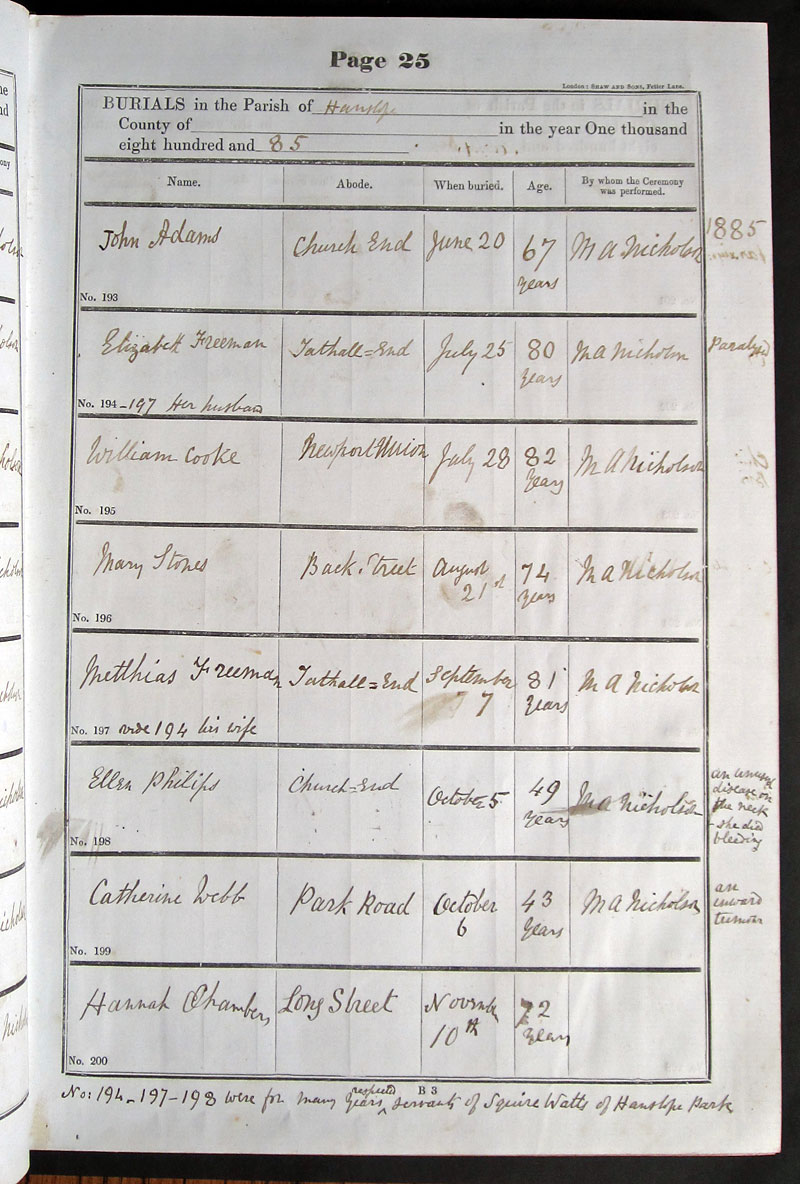 Page 25
London: SHAW AND SONS, Fetter Lane.
BURIALS in the Parish of Hanslope in the
County of in the year One thousand
eight hundred and 85
Name. Abode. When buried. Age. By whom the Ceremony was performed.
1885
John Adams Church End June 20 67 years M A Nicholson
No. 193
Elizabeth Freeman Tathall=End July 25 80 years M A Nicholson Paralysed
No. 194 -197 Her husband
William Cooke Newport Union July 28 82 years M A Nicholson
No. 195
Mary Stones Back Street August 21st 74 years M A Nicholson
No. 196
Metthias Freeman Tathall=End September 7 81 years M A Nicholson
No. 197 vide 194 his wife
Ellen Philips Church=End October 5 49 years M A Nicholson
an unusual
disease on
the neck
- she did
bleeding
No. 198
Catherine Webb Park Road October 6 43 years M A Nicholson
an
inward
tumour
No. 199
Hannah Chambers Long Street November 10th 72 years
No. 200
B 3
No: 194-197-198 were for many years respected servants of Squire Watts of Hanslope Park